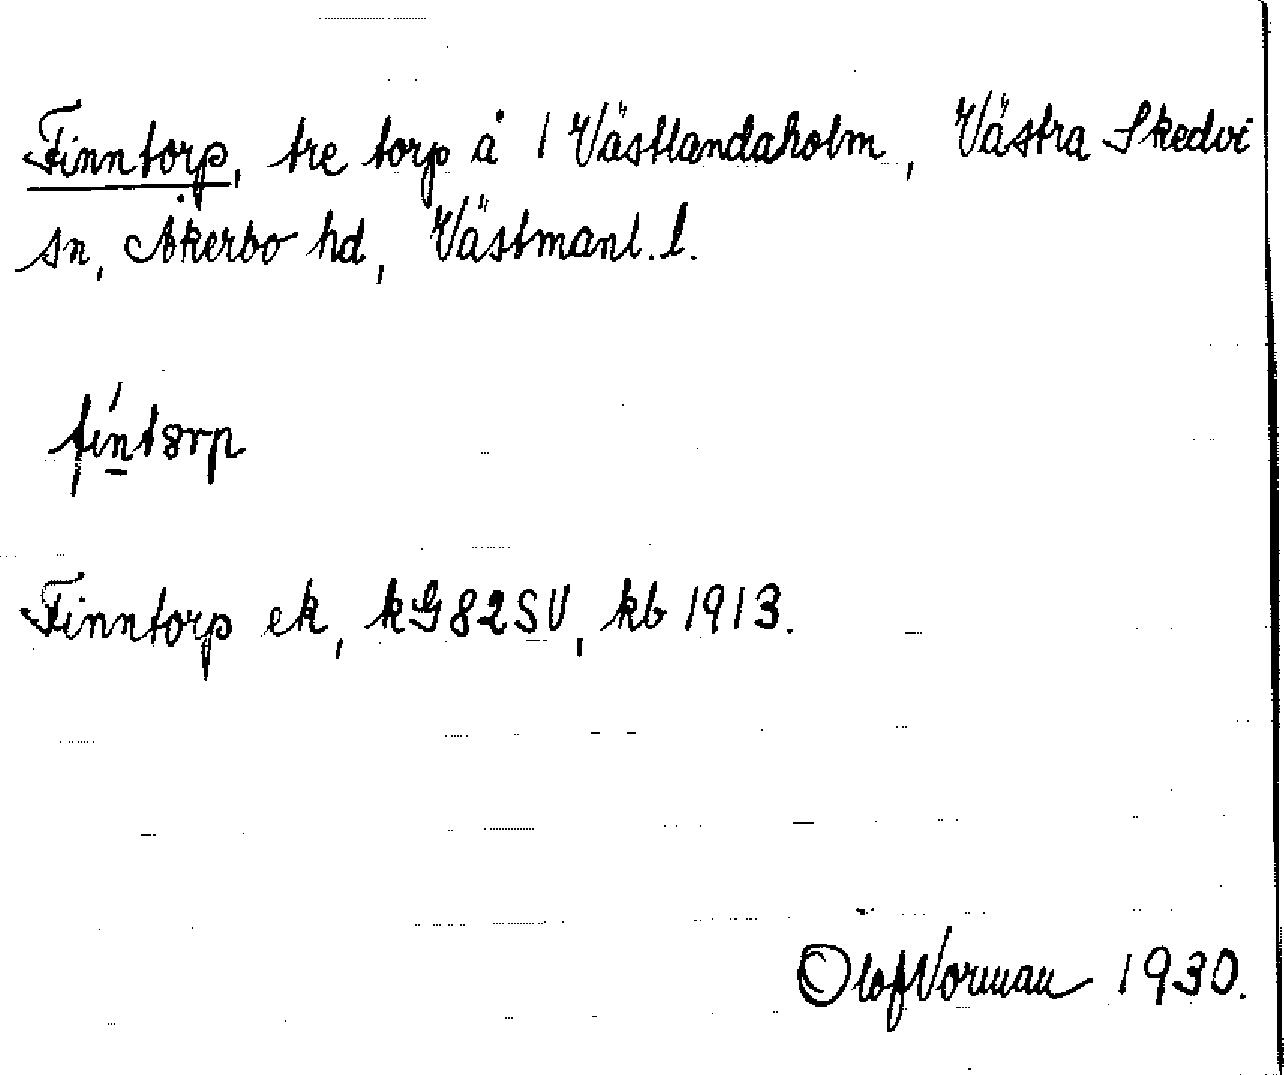 Finntorp, tre torp å 1 Västlandaholm, Västra Skedvi
sn, Åkerbo hd, Västmanl. l.
Finntorp ek, kG82SV, kb 1913.
Olof Norman 1930.